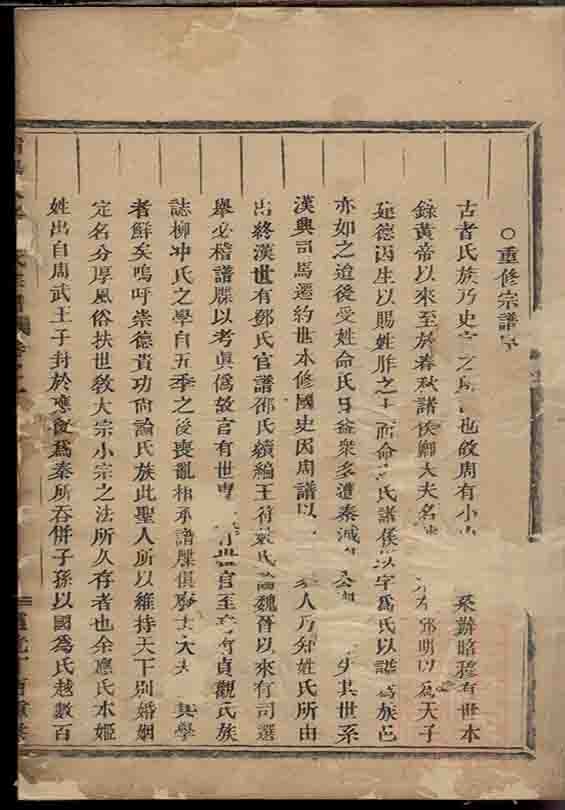 ○重修宗譜序
古者氏族乃史官之 也故周有小史 系辨昭穆有世本
錄黃帝以來至於春秋諸侯卿大夫名 左邱明以爲天子
建德因生以賜姓胙之土而命之氏諸侯以字爲氏以謚爲族邑
亦如之迨後受姓命氏日益衆多遭秦滅 公 失其世系
漢興司馬遷約世本修國史因周譜以 人乃知姓氏所由
出終漢世有鄧氏官譜邵氏續編王符 氏論魏晉以來有司選
舉必稽譜牒以考眞僞故言有世 世官至 有貞觀氏族
誌柳冲氏之學自五季之後喪亂相承譜牒俱 士大夫 其學
者鮮矣嗚呼崇德貴功尚論氏族此聖人所以維持天下別婚姻
定名分厚風俗扶世敎大宗小宗之法所久存者也余應氏本姬
姓出自周武王子封於應後爲秦所吞併子孫以國爲氏越數百